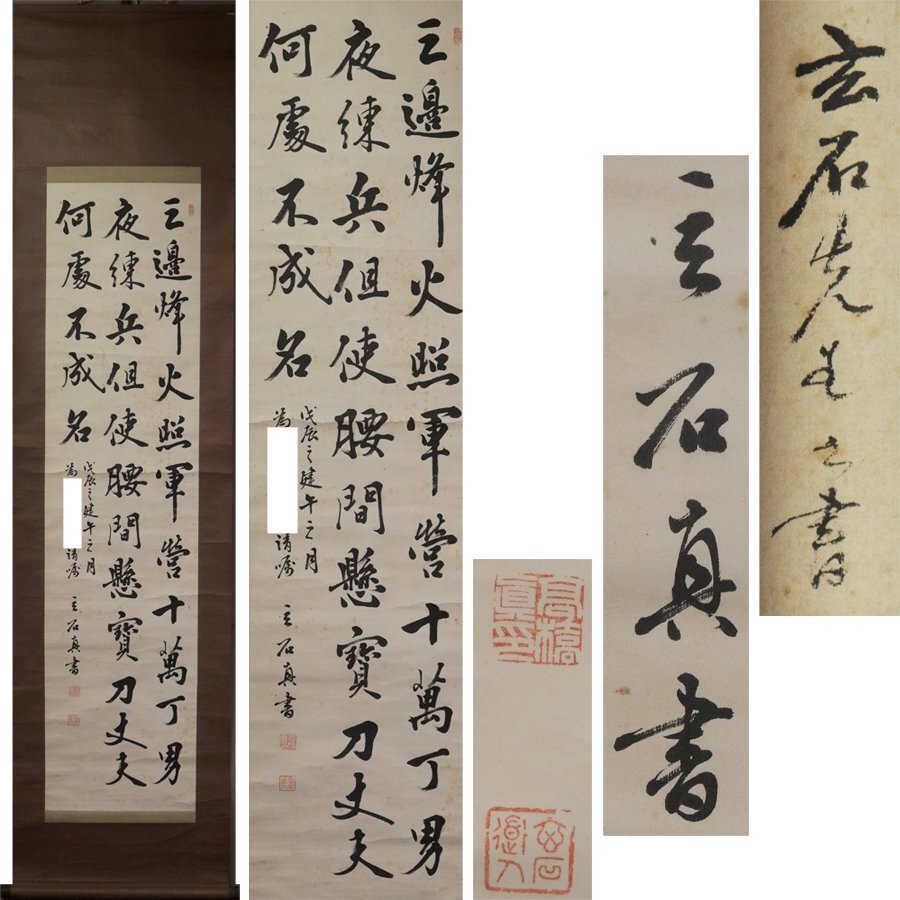 三邊烽火照軍營十萬丁男
夜練兵但使腰間懸寶刀丈夫
何處不成名
戊辰之建午之月
為
請嘱
玄石真書
三邊烽火照軍營十萬丁男
夜練兵但使腰間懸寶刀丈夫
何處不成名
戊辰之建午之月
為
請嘱
玄石真書
高橋
真印
玄石
玄石真書
玄石先生之書